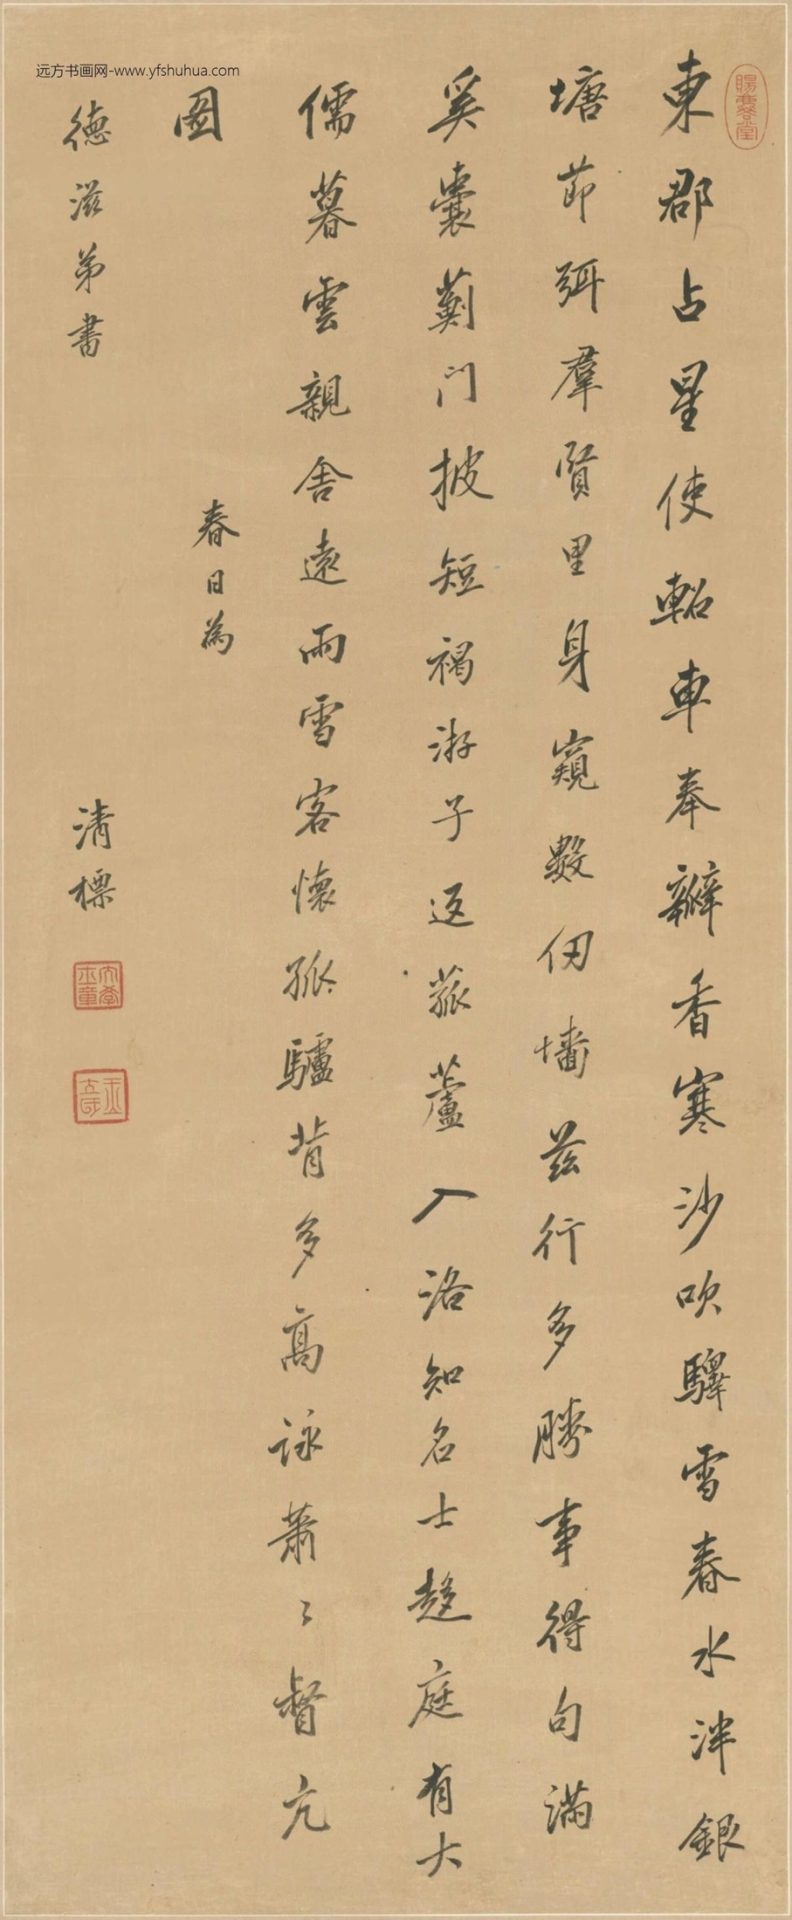 远方书画网-www.yfshuhua.com
東郡占星使軺車奉瓣香寒沙吹驛雪春水泮銀
塘節弭羣賢里身窺數仞墻茲行多勝事得句滿
奚囊薊门披短褐游子返菰蘆入洛知名士趍庭有大
儒暮雲親舍遠雨雪客懷孤驢背多高詠蕭〻督亢
圖
春日為
德滋弟書
清標